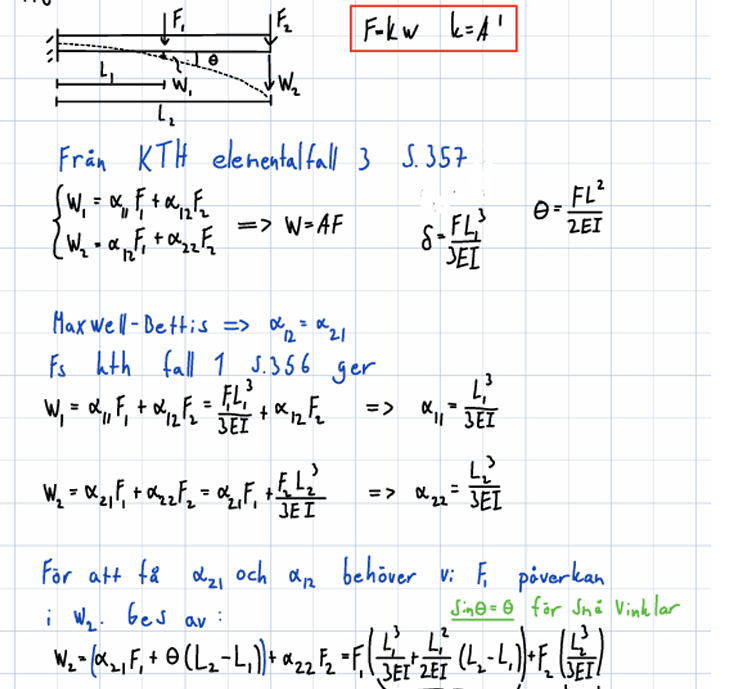 F₁ F₂
F=kw k=A¹
θ
L₁ W₁ W₂
L₂
Från KTH elementalfall 3 S.357
W₁ = α₁₁F₁ + α₁₂F₂
W₂ = α₁₂F₁ + α₂₂F₂ => W=AF
δ = FL₁³/3EI
θ = FL²/2EI
Maxwell-Bettis => α₁₂ = α₂₁
Fs kth fall 1 S.356 ger
W₁ = α₁₁F₁ + α₁₂F₂ = F₁L₁³/3EI + α₁₂F₂ => α₁₁ = L₁³/3EI
W₂ = α₂₁F₁ + α₂₂F₂ = α₂₁F₁ + F₂L₂³/3EI => α₂₂ = L₂³/3EI
För att få α₂₁ och α₁₂ behöver vi F₁ påverkan
i W₂. bes av: sinθ=θ för små vinklar
W₂ = (α₂₁F₁ + θ(L₂-L₁)) + α₂₂F₂ = F₁(L₁³/3EI + L₁²/2EI (L₂-L₁)) + F₂(L₂³/3EI)